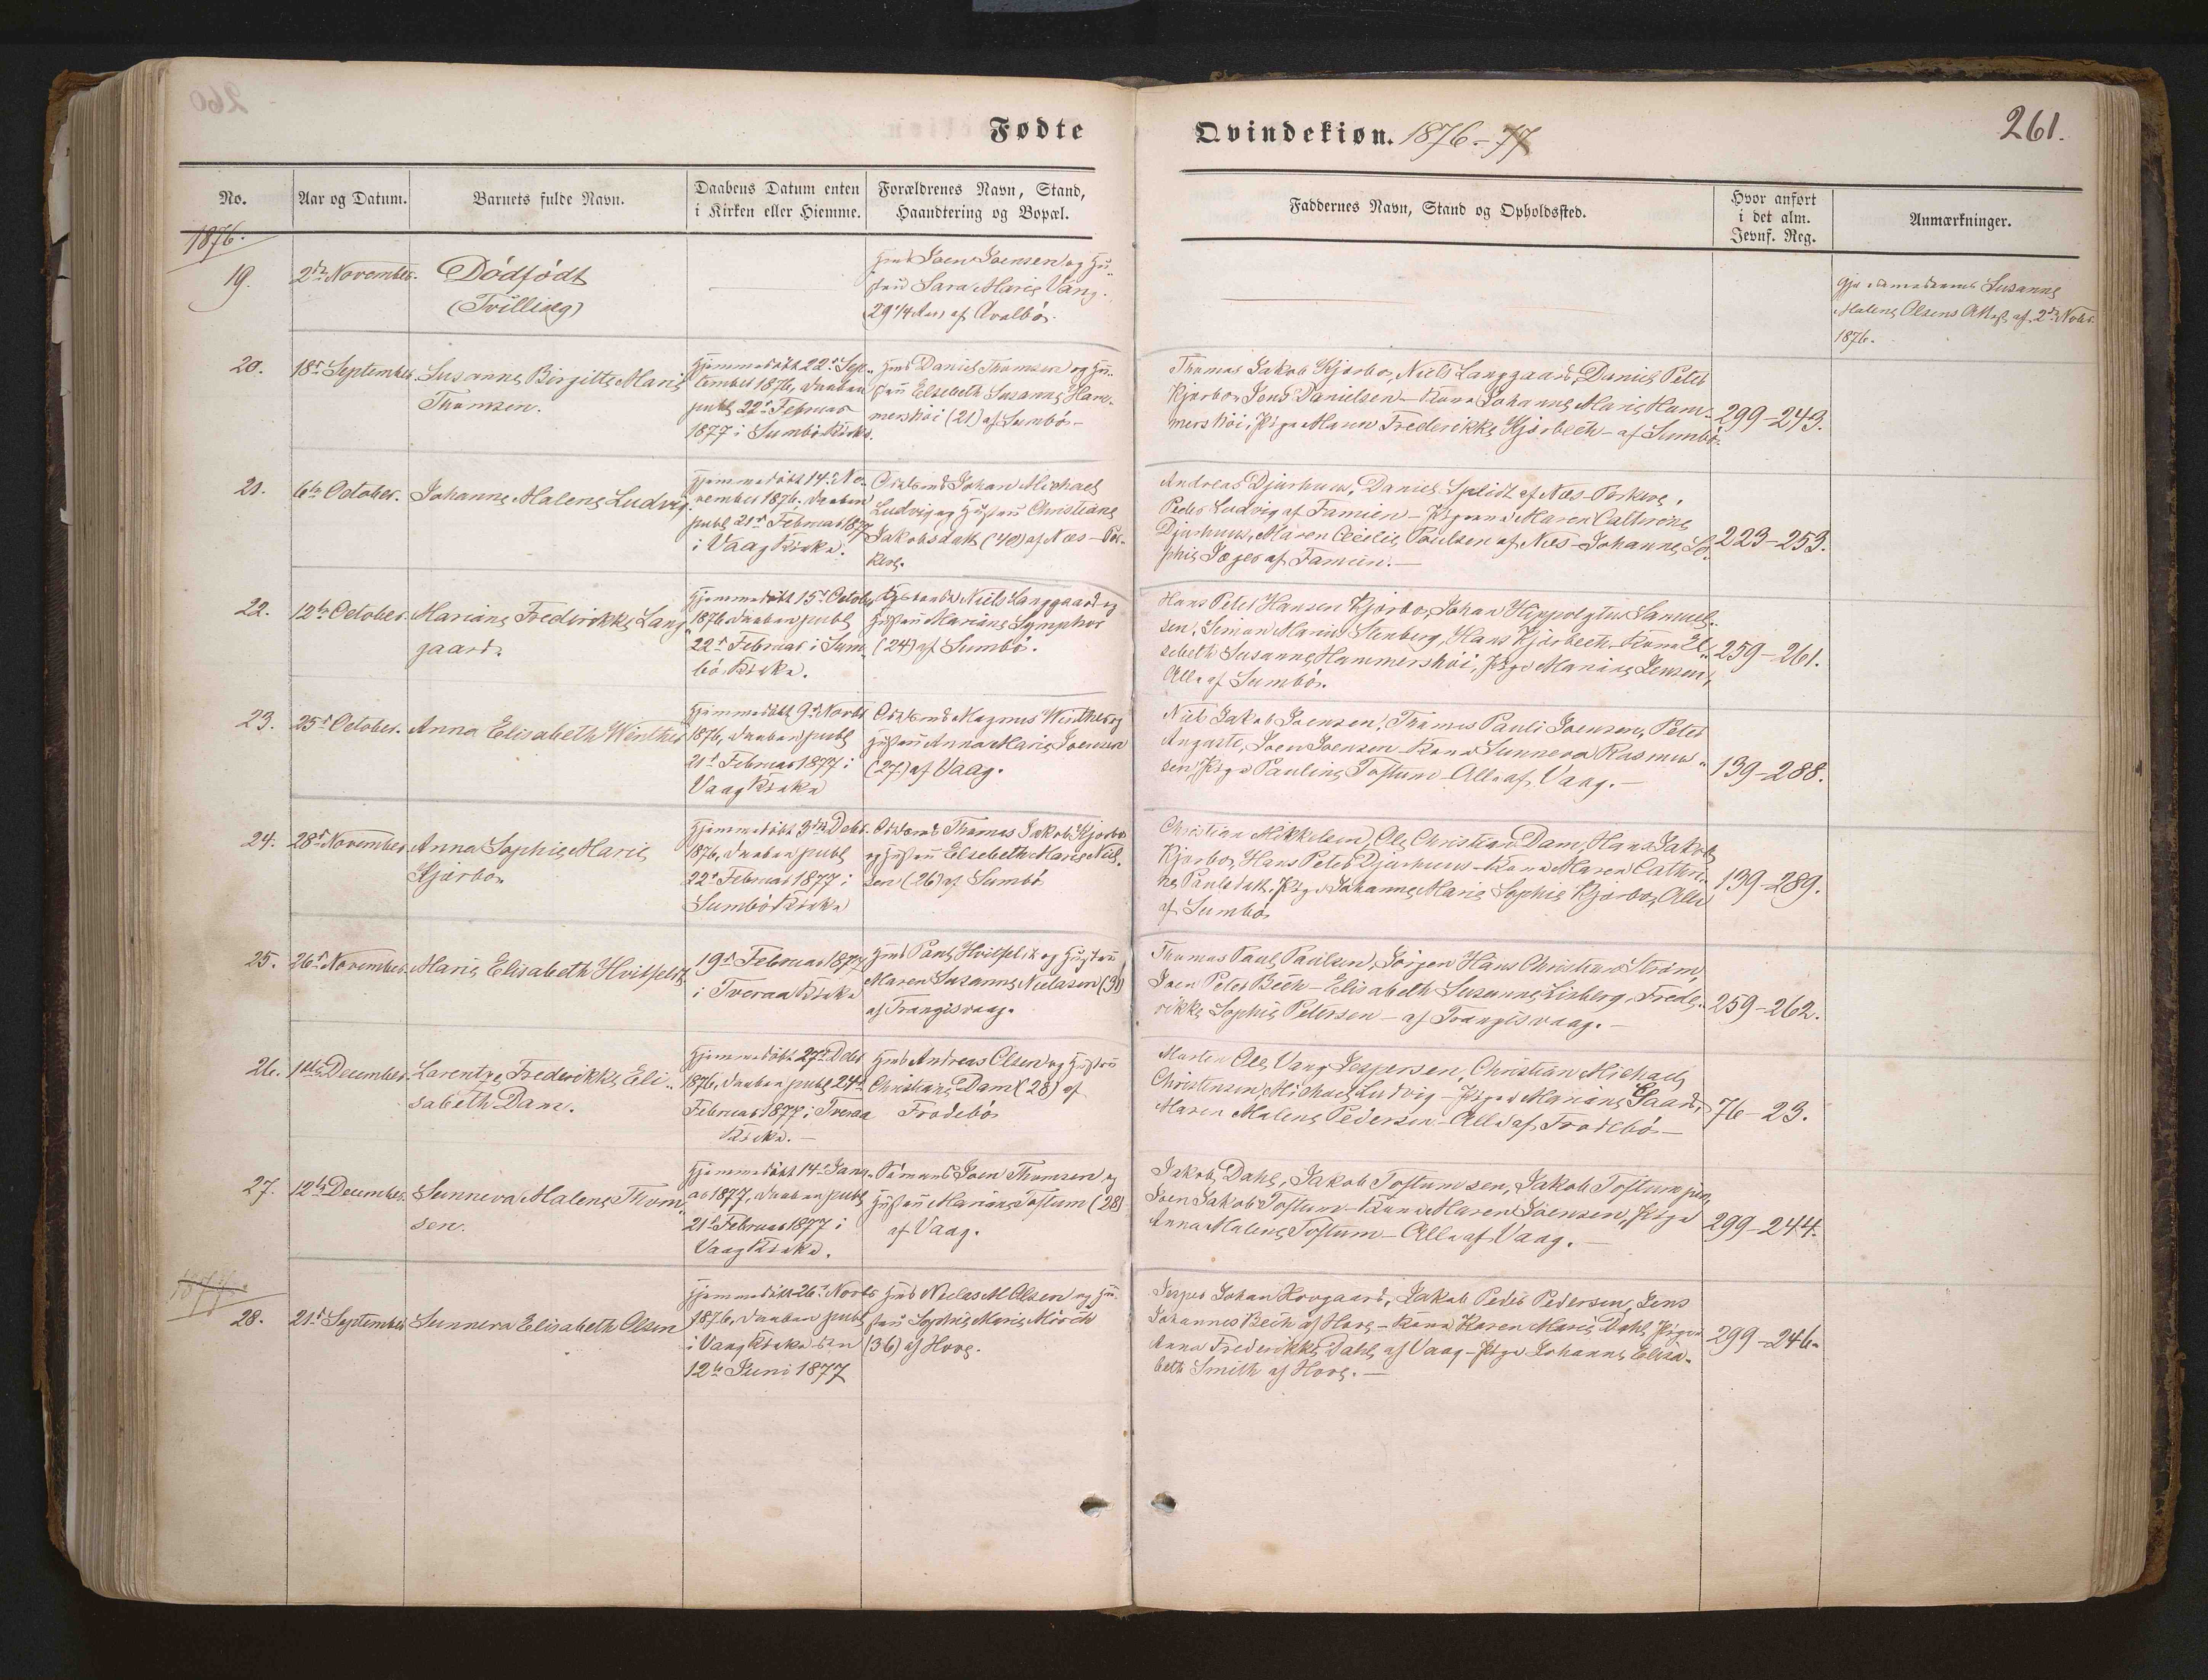 Fødte
Qvindekiøn. 1876-77
261.
No.
Aar og Datum.
Barnets fulde Navn.
Daabens Datum enten
i Kirken eller Hiemme.
Forældrenes Navn, Stand,
Haandtering og Bopæl.
Faddernes Navn, Stand og Opholdssted.
Hvor anført
i det alm.
Jevnf. Reg.
Anmærkninger.
1876.
19.
2den November.
Dödfödt
(Tvilling)
Joen Joensen og Hu-
stru Sara Marie Vang.
(29 1/4 Aar) af Qvalbö.
Susanne
Malene Olsens Att. af 2den Novbr.
1876.
20.
18de September.
Susanne Birgitte Marie
Thomsen.
Hjemmedöbt 22de Sep-
tember 1876, Daaben
publ. 22de Februar
1877 i Sumbö Kirke.
Daniel Thomsen og Hu-
stru Elsebeth Susanne Ham-
mershöi (21) af Sumbö-
Thomas Jakob Kjærbo, Niels Langgaard, Daniel Peter
Kjærbo, Jens Danielsen - Kone Johanne Marie Ham-
mershöi, Pige Maren Frederikke Kjærbech - af Sumbö.
299-243.
21.
6te October.
Johanne Malene Ludvig.
Hjemmedöbt 14de No-
vember 1876, Daaben
publ. 21de Februar 1877
i Vaag Kirke.
Johan Michael
Ludvig og Hustru Christiane
Jakobsdatt. (40) af Næs - Por-
kere.
Andreas Djurhuus, Daniel Splidt af Næs-Porkere,
Peder Ludvig af Famien - Maren Cathrine
Djurhuus, Maren Cecilie Poulsen af Næs - Johanne So-
phie Joger af Famien.-
223-253.
22.
12te October.
Mariane Frederikke Lang-
gaard.
Hjemmedöbt 15de October
1876, Daaben publ.
22de Februar i Sum-
bö Kirke.
Niels Langgaard og
Hustru Mariane Symphor
(24) af Sumbö.
Hans Peter Hansen Kjærbo, Johan Hippolytus Samuel-
sen, Simon Marius Stenberg, Hans Kjærbech - Kone El-
sebeth Susanne Hammershöi, Pige Mariane Jensen,
Alle af Sumbö.
259-261.
23.
25de October.
Anna Elisabeth Winther
Hjemmedöbt 9de Novbr.
1876, Daaben publ.
21de Februar 1877 i
Vaag Kirke
Magnus Winther og
Hustru Anna Marie Joensen
(27) af Vaag.
Niels Jakob Joensen, Thomas Pauli Joensen, Peter
Auguste, Joen Joensen - Kone Sunneva Rasmus-
sen, Pige Pauline Toftum - Alle af Vaag.-
139-288.
24.
28de November.
Anna Sophie Marie
Kjærbo.
Hjemmedöbt 3die Decbr.
1876, Daaben publ.
22de Februar 1877 i
Sumbö Kirke
Thomas Jakob Kjærbo
og Hustru Elsebeth Marie Niel-
sen (26) af Sumbö
Christian Mikkelsen, Ole Christian Dam, Hans Jakob
Kjærbo, Hans Peter Djurhuus - Kone Maren Cathri-
ne Paulsdatt., Pige Johanne Marie Sophie Kjærbo, Alle
af Sumbö
139-289.
25.
26de November.
Marie Elisabeth Hvitfeldt
19de Februar 1877
i Tveraa Kirke
Paul Hvitfeldt og Hustru
Maren Susanne Nielsen (31)
af Trangisvaag.
Thomas Paul Paulsen, Jörgen Hans Christian Ström,
Joen Peter Bech - Elisabeth Susanne Lisberg, Frede-
rikke Sophie Petersen - af Trangisvaag.-
259-262.
26.
1ste December.
Larentze Frederikke Eli-
sabeth Dam.
Hjemmedöbt 27de Decbr.
1876, Daaben publ. 24de
Februar 1877 i Tveraa
Kirke.-
Andreas Olsen og Hustru
Christiane Dam (28) af
Frodebö
Morten Ole Vang Jespersen, Christian Michael
Christensen, Michael Ludvig - Pige Mariane Gaard,
Maren Malene Pedersen - Alle af Frodebö-
76-23.
27.
12te December.
Sunneva Malene Thom-
sen.
Hjemmedöbt 14de Janu-
ar 1877, Daaben publ.
21de Februar 1877 i
Vaag Kirke.
Joen Thomsen og
Hustru Mariane Toftum (28)
af Vaag.
Jakob Dahl, Jakob Toftumsen, Jakob Toftum jun.
Joen Jakob Toftum - Kone Maren Joensen, Pige
Anna Malene Toftum - Alle af Vaag.-
299-244.
1877.
28.
21de September
Sunneva Elisabeth Olsen
Hjemmedöbt 26de Novbr.
1876, Daaben publ.
i Vaag Kirke den
12te Juni 1877
Nielas M. Olsen og Hu-
stru Sophie Marie Mörch
(36) af Hove.
Jesper Johan Hovgaard, Jakob Peder Pedersen, Jens
Johannes Bech af Hove - Kone Karen Marie Dahl, Pige
Anna Frederikke Dahl af Vaag - Pige Johanne Elisa-
beth Smith af Hove.-
299-246.